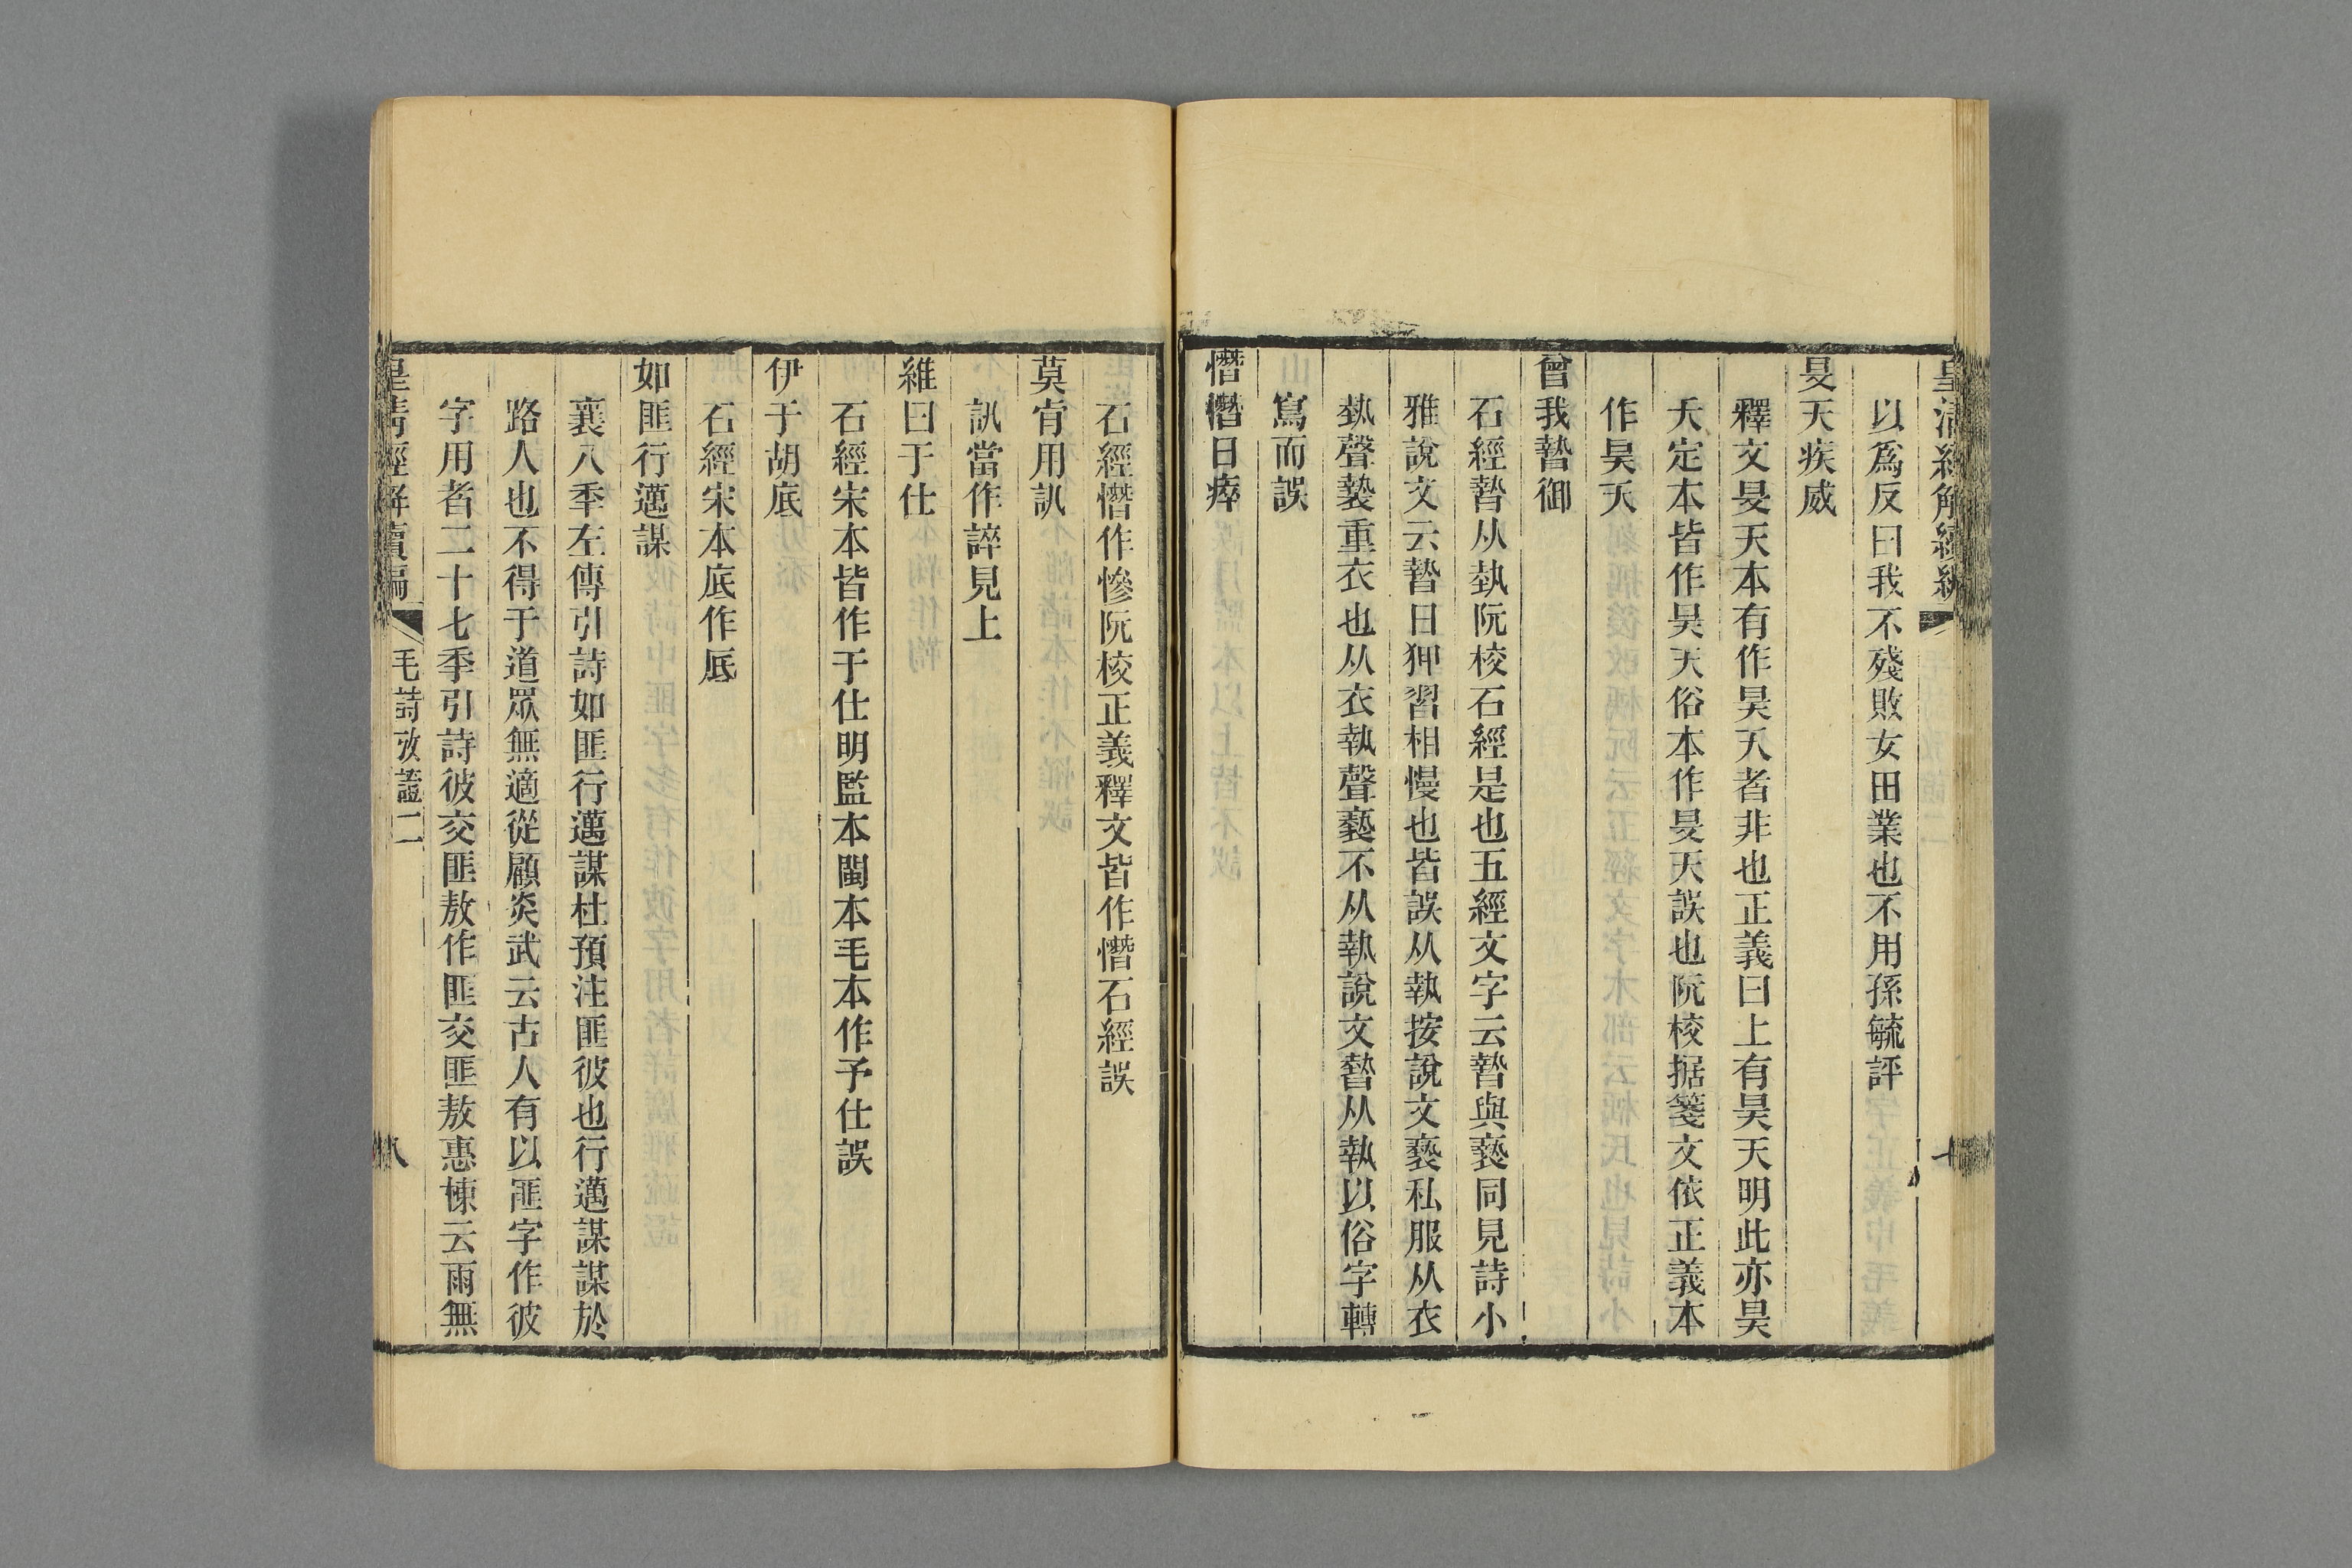 皇清經解續編
以爲反曰我不殘敗女田業也不用孫毓評
旻天疾威
釋文旻天本有作昊天者非也正義曰上有昊天明此亦昊
天定本皆作昊天俗本作旻天誤也阮校据箋文依正義本
作昊天
曾我暬御
石經暬从埶阮校石經是也五經文字云暬與褻同見詩小
雅說文云暬日狎習相慢也皆誤从執按說文褻私服从衣
埶聲褺重衣也从衣執聲褻不从執說文暬从執以俗字轉
寫而誤
憯憯日瘁
石經憯作慘阮校正義釋文皆作憯石經誤
莫肯用訊
訊當作誶見上
維曰于仕
石經宋本皆作于仕明監本閩本毛本作予仕誤
伊于胡底
石經宋本底作厎
如匪行邁謀
襄八季左傳引詩如匪行邁謀杜預注匪彼也行邁謀謀於
路人也不得于道眾無適從顧炎武云古人有以匪字作彼
字用者二十七季引詩彼交匪敖作匪交匪敖惠棟云雨無
皇清經解續編 毛詩攷證二 八